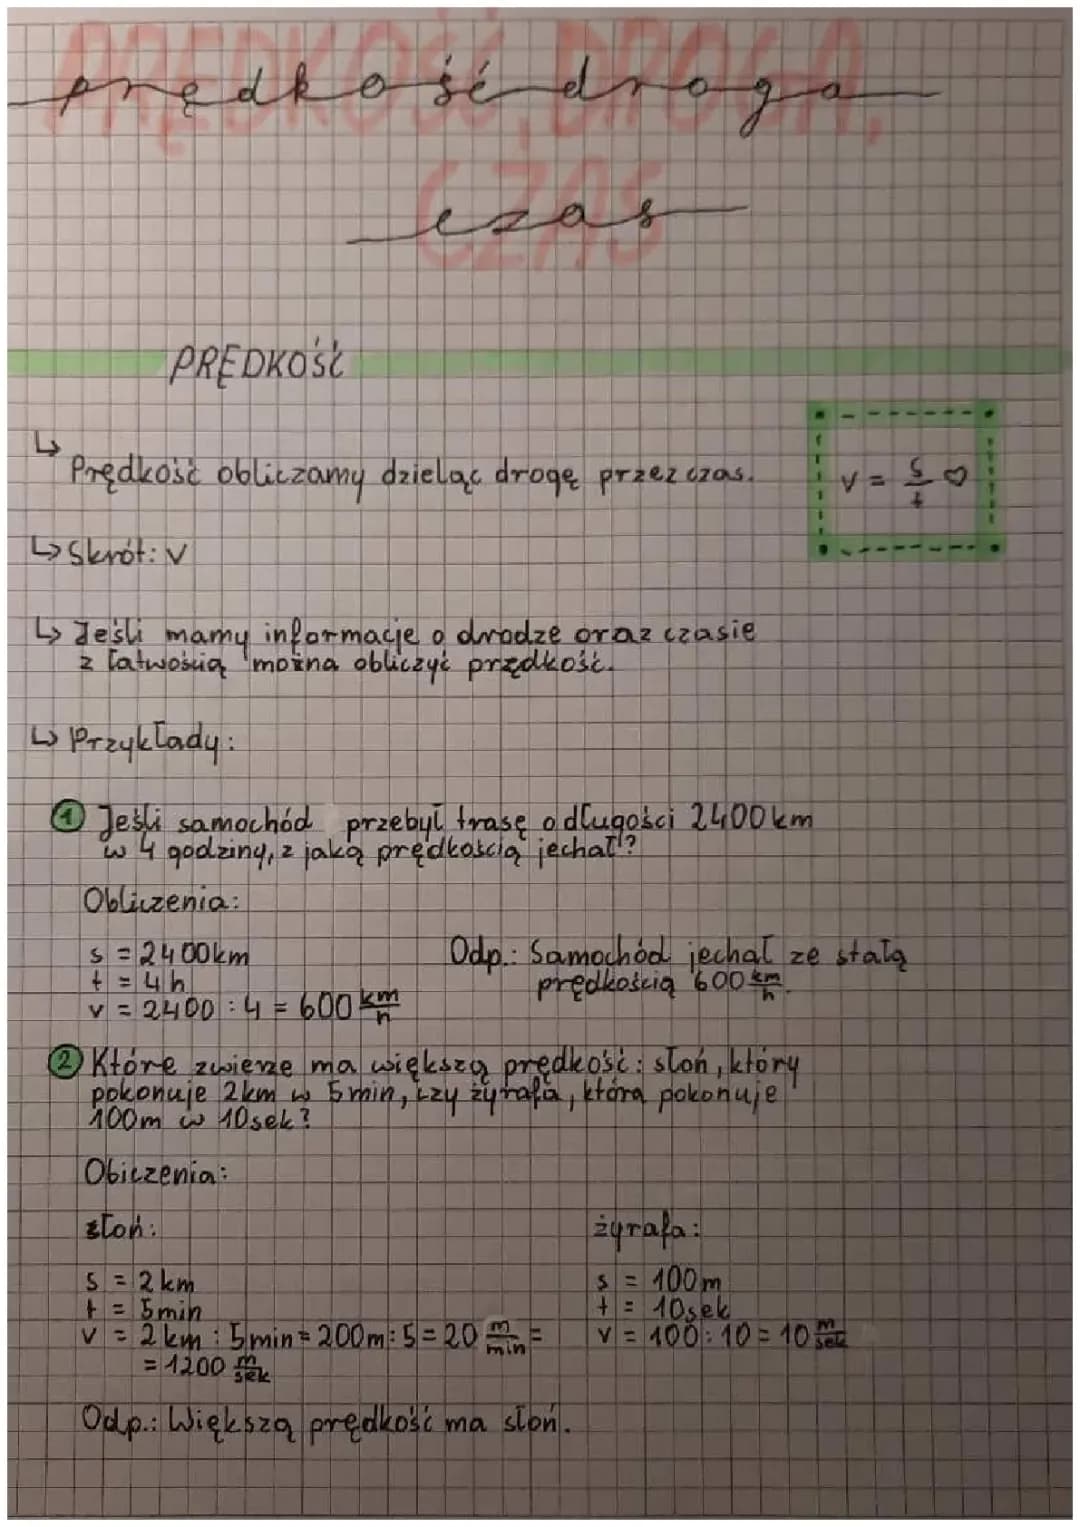 PRĘDKOŚĆ, DROGA,
prędkość droga
CZAS
czas
PRĘDKOŚĆ
↳ Prędkość obliczamy dzieląc drogę przez czas.
v = s/t ♡
↳ Skrót: v
↳ Jeśli mamy informacje o drodze oraz czasie
z łatwością można obliczyć prędkość.
↳ Przykłady:
① Jeśli samochód przebył trasę o długości 2400 km
w 4 godziny, z jaką prędkością jechał?
Obliczenia:
s = 2400km
t = 4h
v = 2400 : 4 = 600 km/h
Odp.: Samochód jechał ze stałą
prędkością 600 km/h.
② Które zwierzę ma większą prędkość: słoń, który
pokonuje 2km w 5min, czy żyrafa, która pokonuje
100m w 10sek?
Obiczenia:
słoń:
s = 2 km
t = 5min
v = 2 km : 5min = 200m : 5 = 20 m/min =
= 1200 m/sek
żyrafa:
s = 100m
t = 10sek
v = 100 : 10 = 10 m/sek
Odp.: Większą prędkość ma słoń.